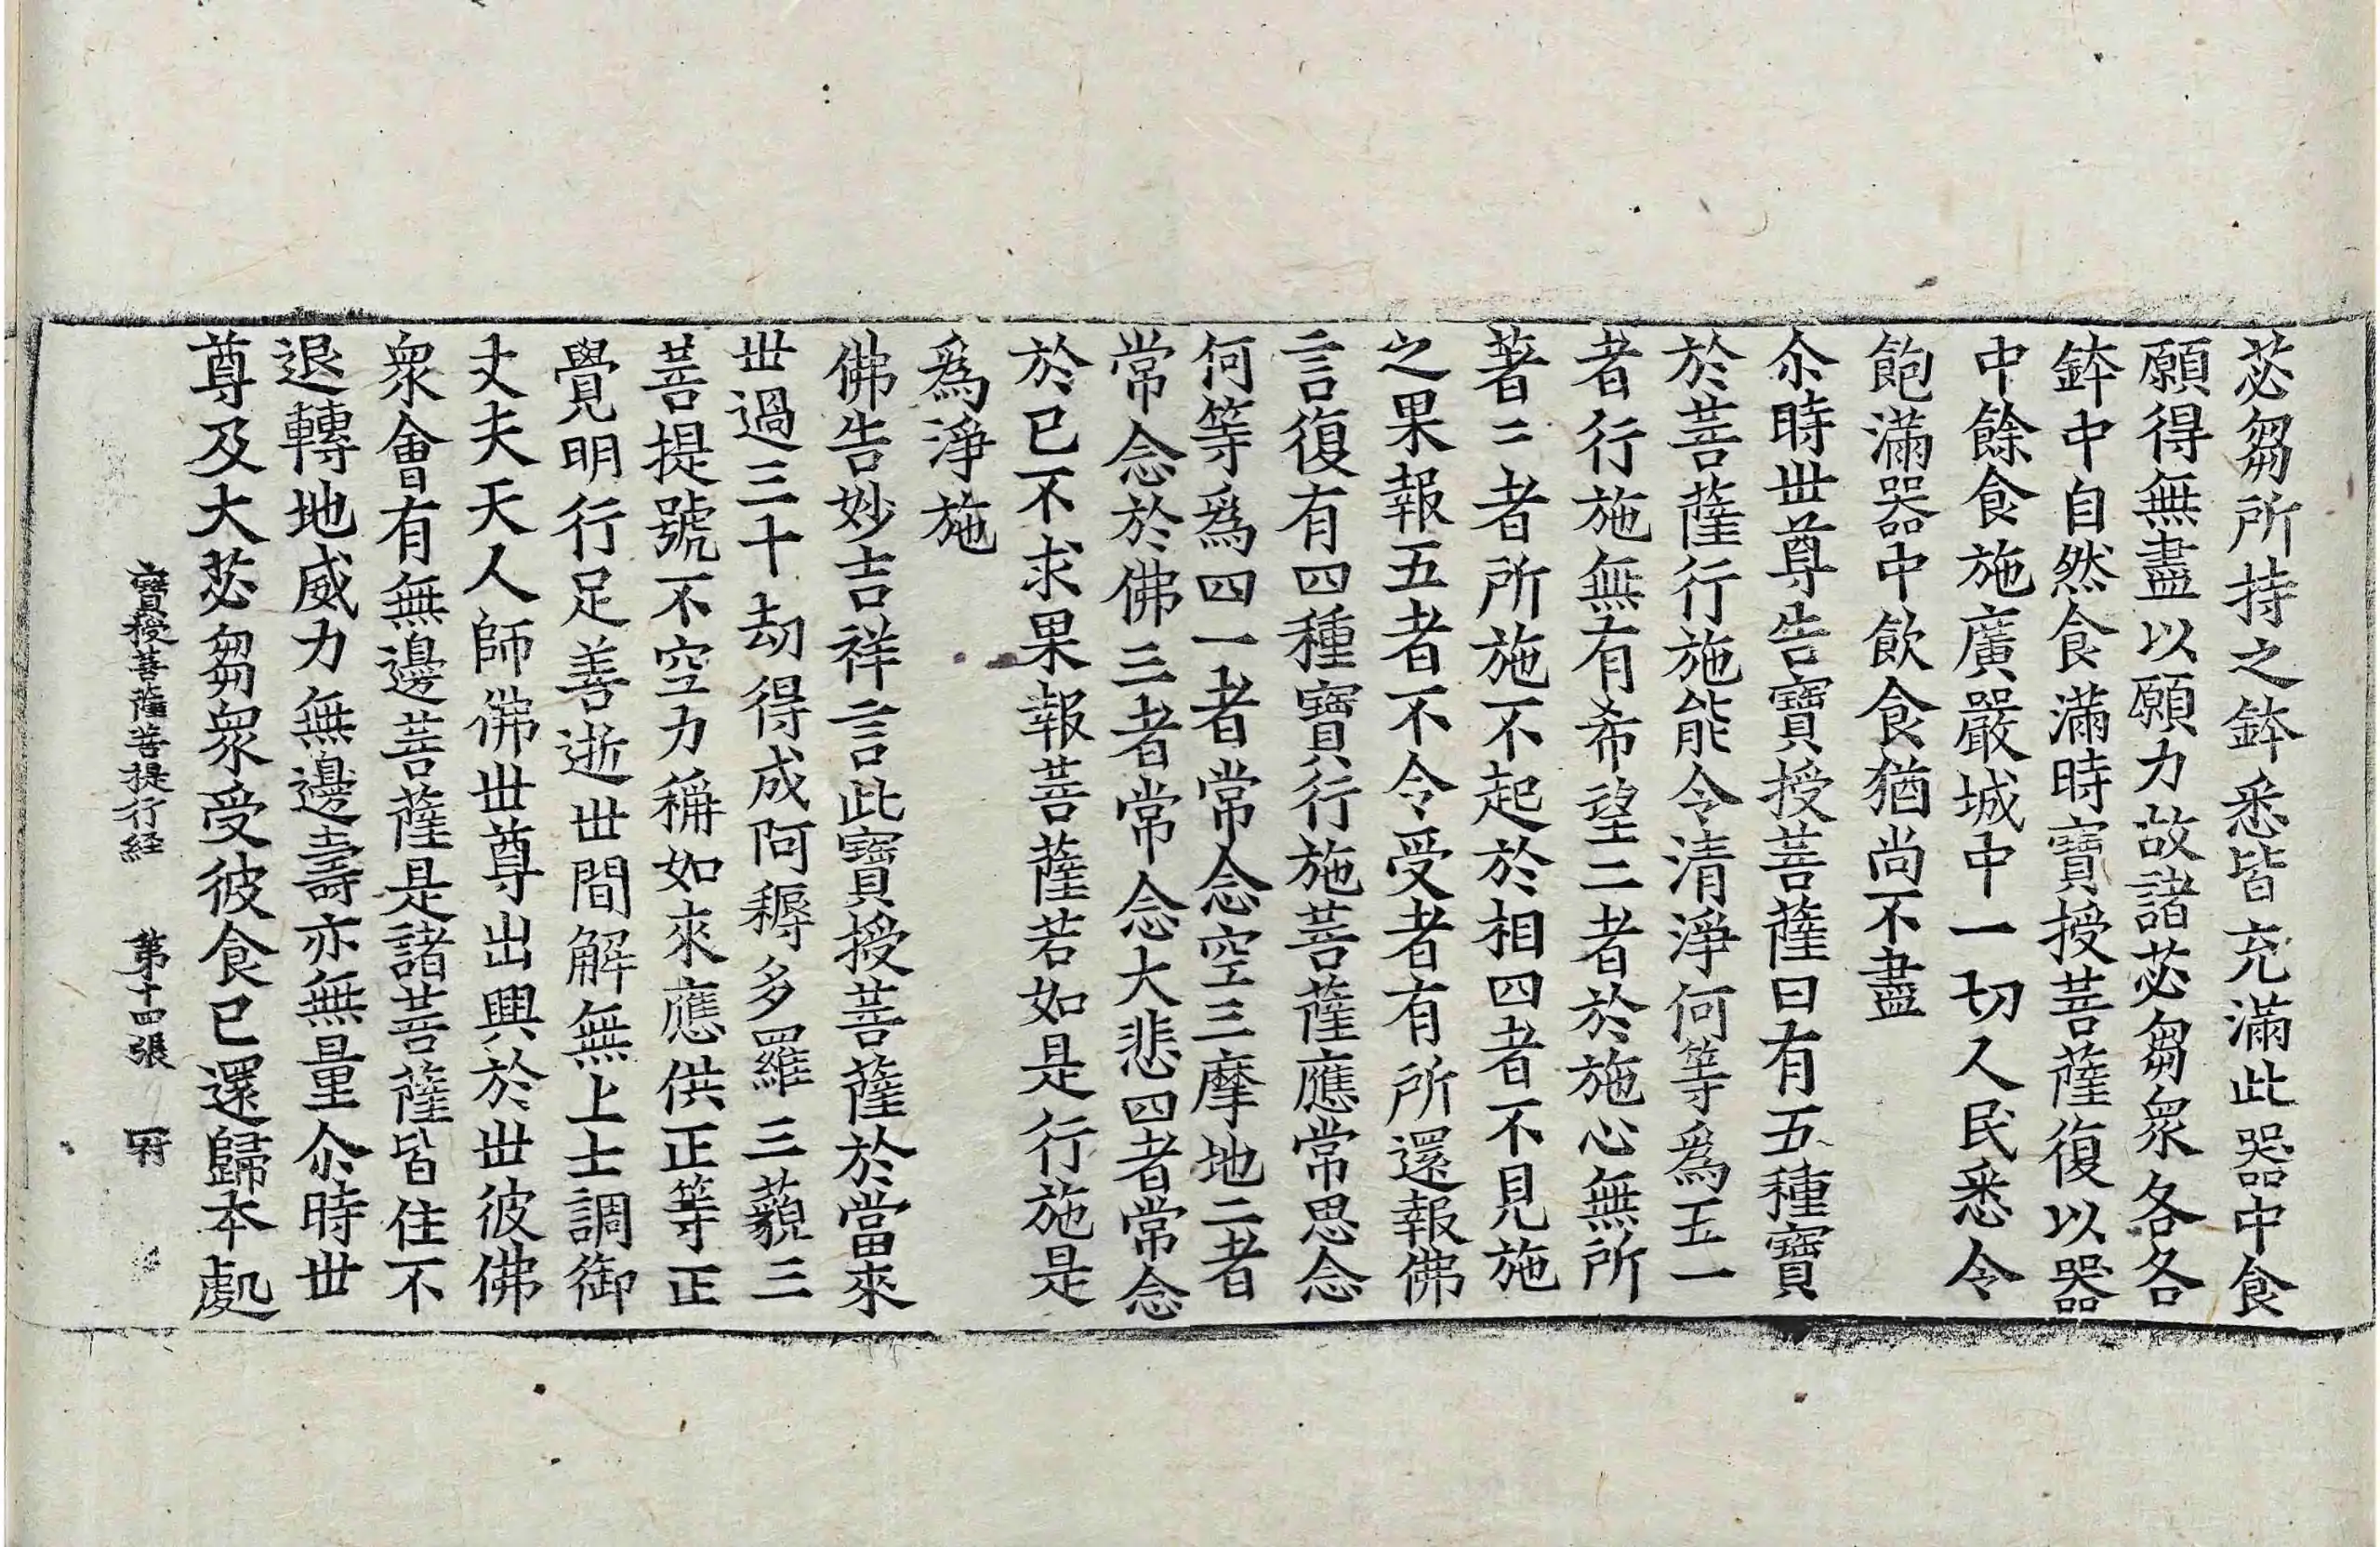 苾芻所持之鉢悉皆充滿此器中食
願得無盡以願力故諸苾芻衆各各
鉢中自然食滿時寶授菩薩復以器
中餘食施廣嚴城中一切人民悉令
飽滿器中飲食猶尚不盡
尒時世尊告寶授菩薩曰有五種寶
於菩薩行施能令清淨何等爲五一
者行施無有希望二者於施心無所
著三者所施不起於相四者不見施
之果報五者不令受者有所還報佛
言復有四種寶行施菩薩應常思念
何等爲四一者常念空三摩地二者
常念於佛三者常念大悲四者常念
於已不求果報菩薩若如是行施是
爲淨施
佛告妙吉祥言此寶授菩薩於當來
世過三十劫得成阿耨多羅三藐三
菩提號不空力稱如來應供正等正
覺明行足善逝世間解無上士調御
丈夫天人師佛世尊出興於世彼佛
衆會有無邊菩薩是諸菩薩皆住不
退轉地威力無邊壽亦無量尒時世
尊及大苾芻衆受彼食已還歸本處
寶授菩薩菩提行経 第十四張